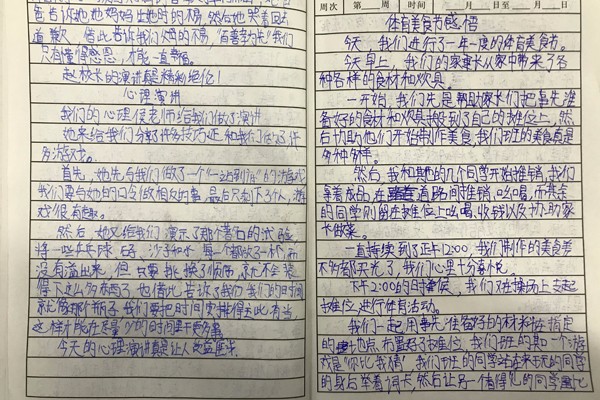 爸告诉她她妈妈出她时的不易,然后她哭着回去
道歉。借此告诉我们父母的不易,"百善孝为先"我们
只有懂得感恩,才能一直幸福。
赵校长的演讲真是精彩绝伦!
心理演讲
我们的心理侯老师给我们做了演讲
她来给我们分享了许多技巧还和我们做了许
多游戏。
首先,她先与我们做了一个"一站到底"的小游戏
我们要与她的口令做相反的事,最后只剩下3个人,游
戏很有趣。
然后,她又给我们演示了那个著名的试验,
将一些乒乓球、石子、沙子和水,每一个都放了一杯,而
没有溢出来,但只要挑换了顺序,就不会装
得下这么多东西了,也借此告诉了我们,我们的时间
就像那个瓶子,我们要把时间安排得去此有当,
这样才能在尽量少的时间里干更多事。
今天的心理演讲真是让人收益匪浅
周次 第 周 年 月 日
体育美食节感悟
今天,我们进行了一年一度的体育美食节。
今天早上,我们的家长从家中带来了各
种各样的食材和炊具。
一开始,我们先是帮助家长们把事先准
备好的食材和炊具搬到了自己的摊位上,然
后协助他们开始制作美食,我们班的美食真是
多种多样。
然后,我和其他的几个同学开始推销,我们
拿着成品在道路间推销、吆喝,而其余
的同学则留在摊位上吆喝、收钱以及协助家
长做菜。
一直持续到了正午12:00,我们制作的美食差
不多都卖光了,我们心里十分喜悦。
下午2:00的时候,我们又在操场上支起
摊位,进行体育活动。
我们一起用事先准备好的材料在指定
的地点布置好了摊位,我们班的其中一个游
戏是"你比我猜",我们班的同学站在来玩的同学
的身后举着词卡,然后让另一值得的同学